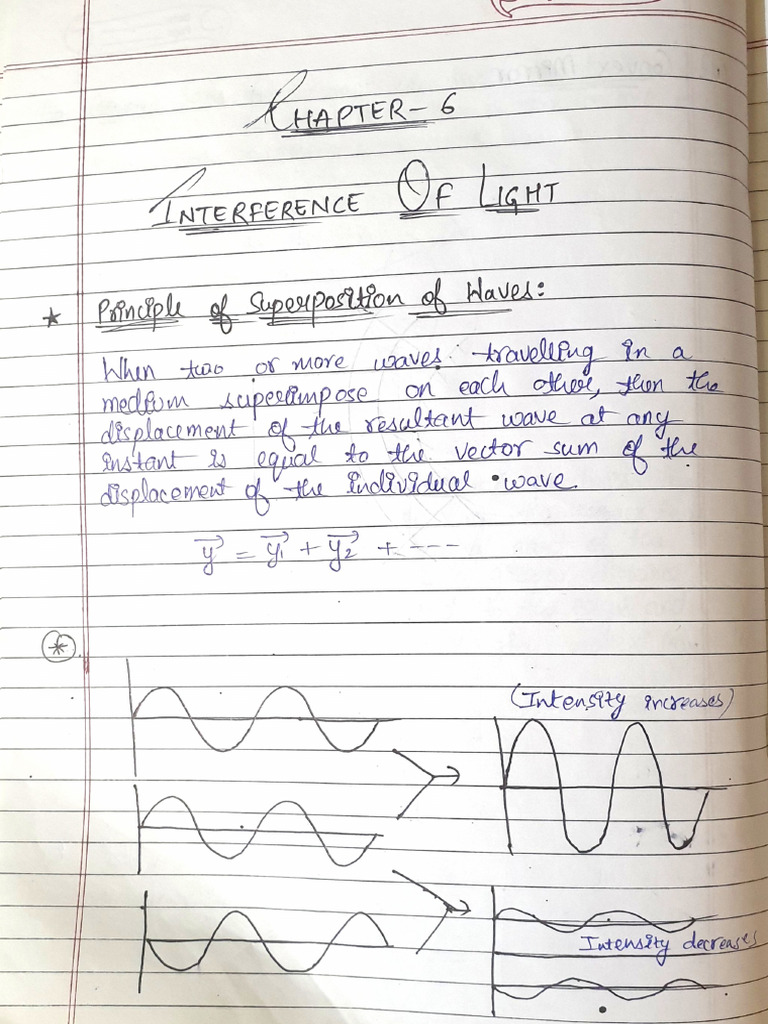 CHAPTER-6
INTERFERENCE OF LIGHT
* Principle of Superposition of Waves:
When two or more waves travelling in a
medium superimpose on each other, then the
displacement of the resultant wave at any
instant is equal to the vector sum of the
displacement of the individual wave.
y⃗ = y⃗1 + y⃗2 + ---
*
(Intensity increases)
Intensity decreases